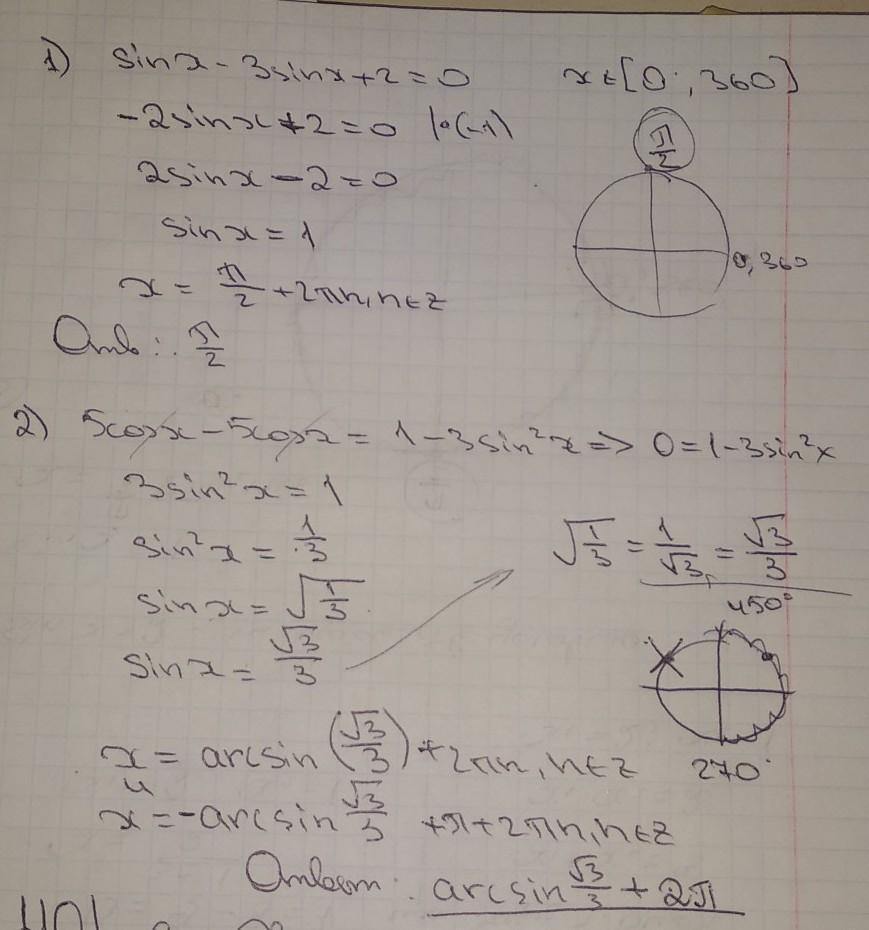 1) sinx - 3sinx + 2 = 0 x ∈ [0°, 360]
-2sinx + 2 = 0 |·(-1)
2sinx - 2 = 0
sinx = 1
x = π/2 + 2πn, n ∈ z
π/2
0, 360
Отв: π/2
2) 5cosx - 5cosx = 1 - 3sin²x => 0 = 1 - 3sin²x
3sin²x = 1
sin²x = 1/3
sinx = √(1/3)
sinx = √3/3
√(1/3) = 1/√3 = √3/3
450°
270°
x = arcsin(√3/3) + 2πn, n ∈ z
и
x = -arcsin √3/3 + π + 2πn, n ∈ z
Ответ: arcsin √3/3 + 2π